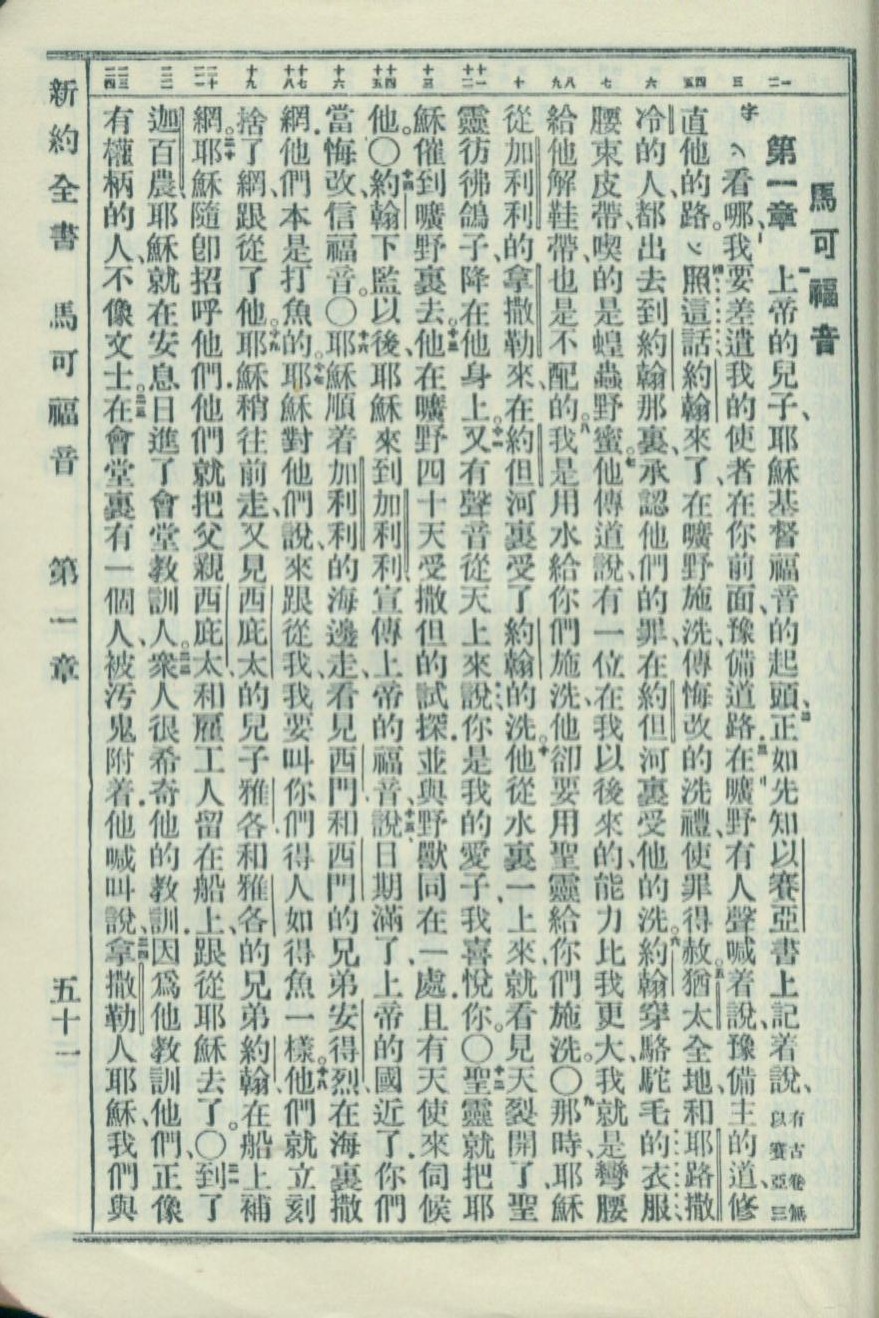 馬可福音
第一章 上帝的兒子、耶穌基督福音的起頭、二正如先知以賽亞書上記着說、有古卷無以賽亞三
字看哪、我要差遣我的使者在你前面、豫備道路三在曠野有人聲喊着說、豫備主的道、修
直他的路。四照這話、約翰來了、在曠野施洗、傳悔改的洗禮、使罪得赦。五猶太全地、和耶路撒
冷的人、都出去到約翰那裏、承認他們的罪、在約但河裏受他的洗。六約翰穿駱駝毛的衣服、
腰束皮帶、喫的是蝗蟲野蜜。七他傳道說、有一位在我以後來的、能力比我更大、我就是彎腰
給他解鞋帶、也是不配的。八我是用水給你們施洗、他卻要用聖靈給你們施洗。〇九那時、耶穌
從加利利的拿撒勒來、在約但河裏受了約翰的洗。十他從水裏一上來、就看見天裂開了、聖
靈彷彿鴿子、降在他身上。十一又有聲音從天上來說、你是我的愛子、我喜悅你。〇十二聖靈就把耶
穌催到曠野裏去。十三他在曠野四十天受撒但的試探．並與野獸同在一處．且有天使來伺候
他。〇十四約翰下監以後、耶穌來到加利利、宣傳上帝的福音、十五說、日期滿了、上帝的國近了．你們
當悔改、信福音。〇十六耶穌順着加利利的海邊走、看見西門、和西門的兄弟安得烈、在海裏撒
網．他們本是打魚的。十七耶穌對他們說、來跟從我、我要叫你們得人如得魚一樣。十八他們就立刻
捨了網、跟從了他。十九耶穌稍往前走、又見西庇太的兒子雅各、和雅各的兄弟約翰、在船上補
網。二十耶穌隨卽招呼他們．他們就把父親西庇太、和雇工人留在船上、跟從耶穌去了。〇二一到了
迦百農、耶穌就在安息日進了會堂教訓人。二二衆人很希奇他的教訓．因爲他教訓他們、正像
有權柄的人、不像文士。二三在會堂裏有一個人、被污鬼附着．他喊叫說、二四拿撒勒人耶穌、我們與
新約全書 馬可福音 第一章 五十一